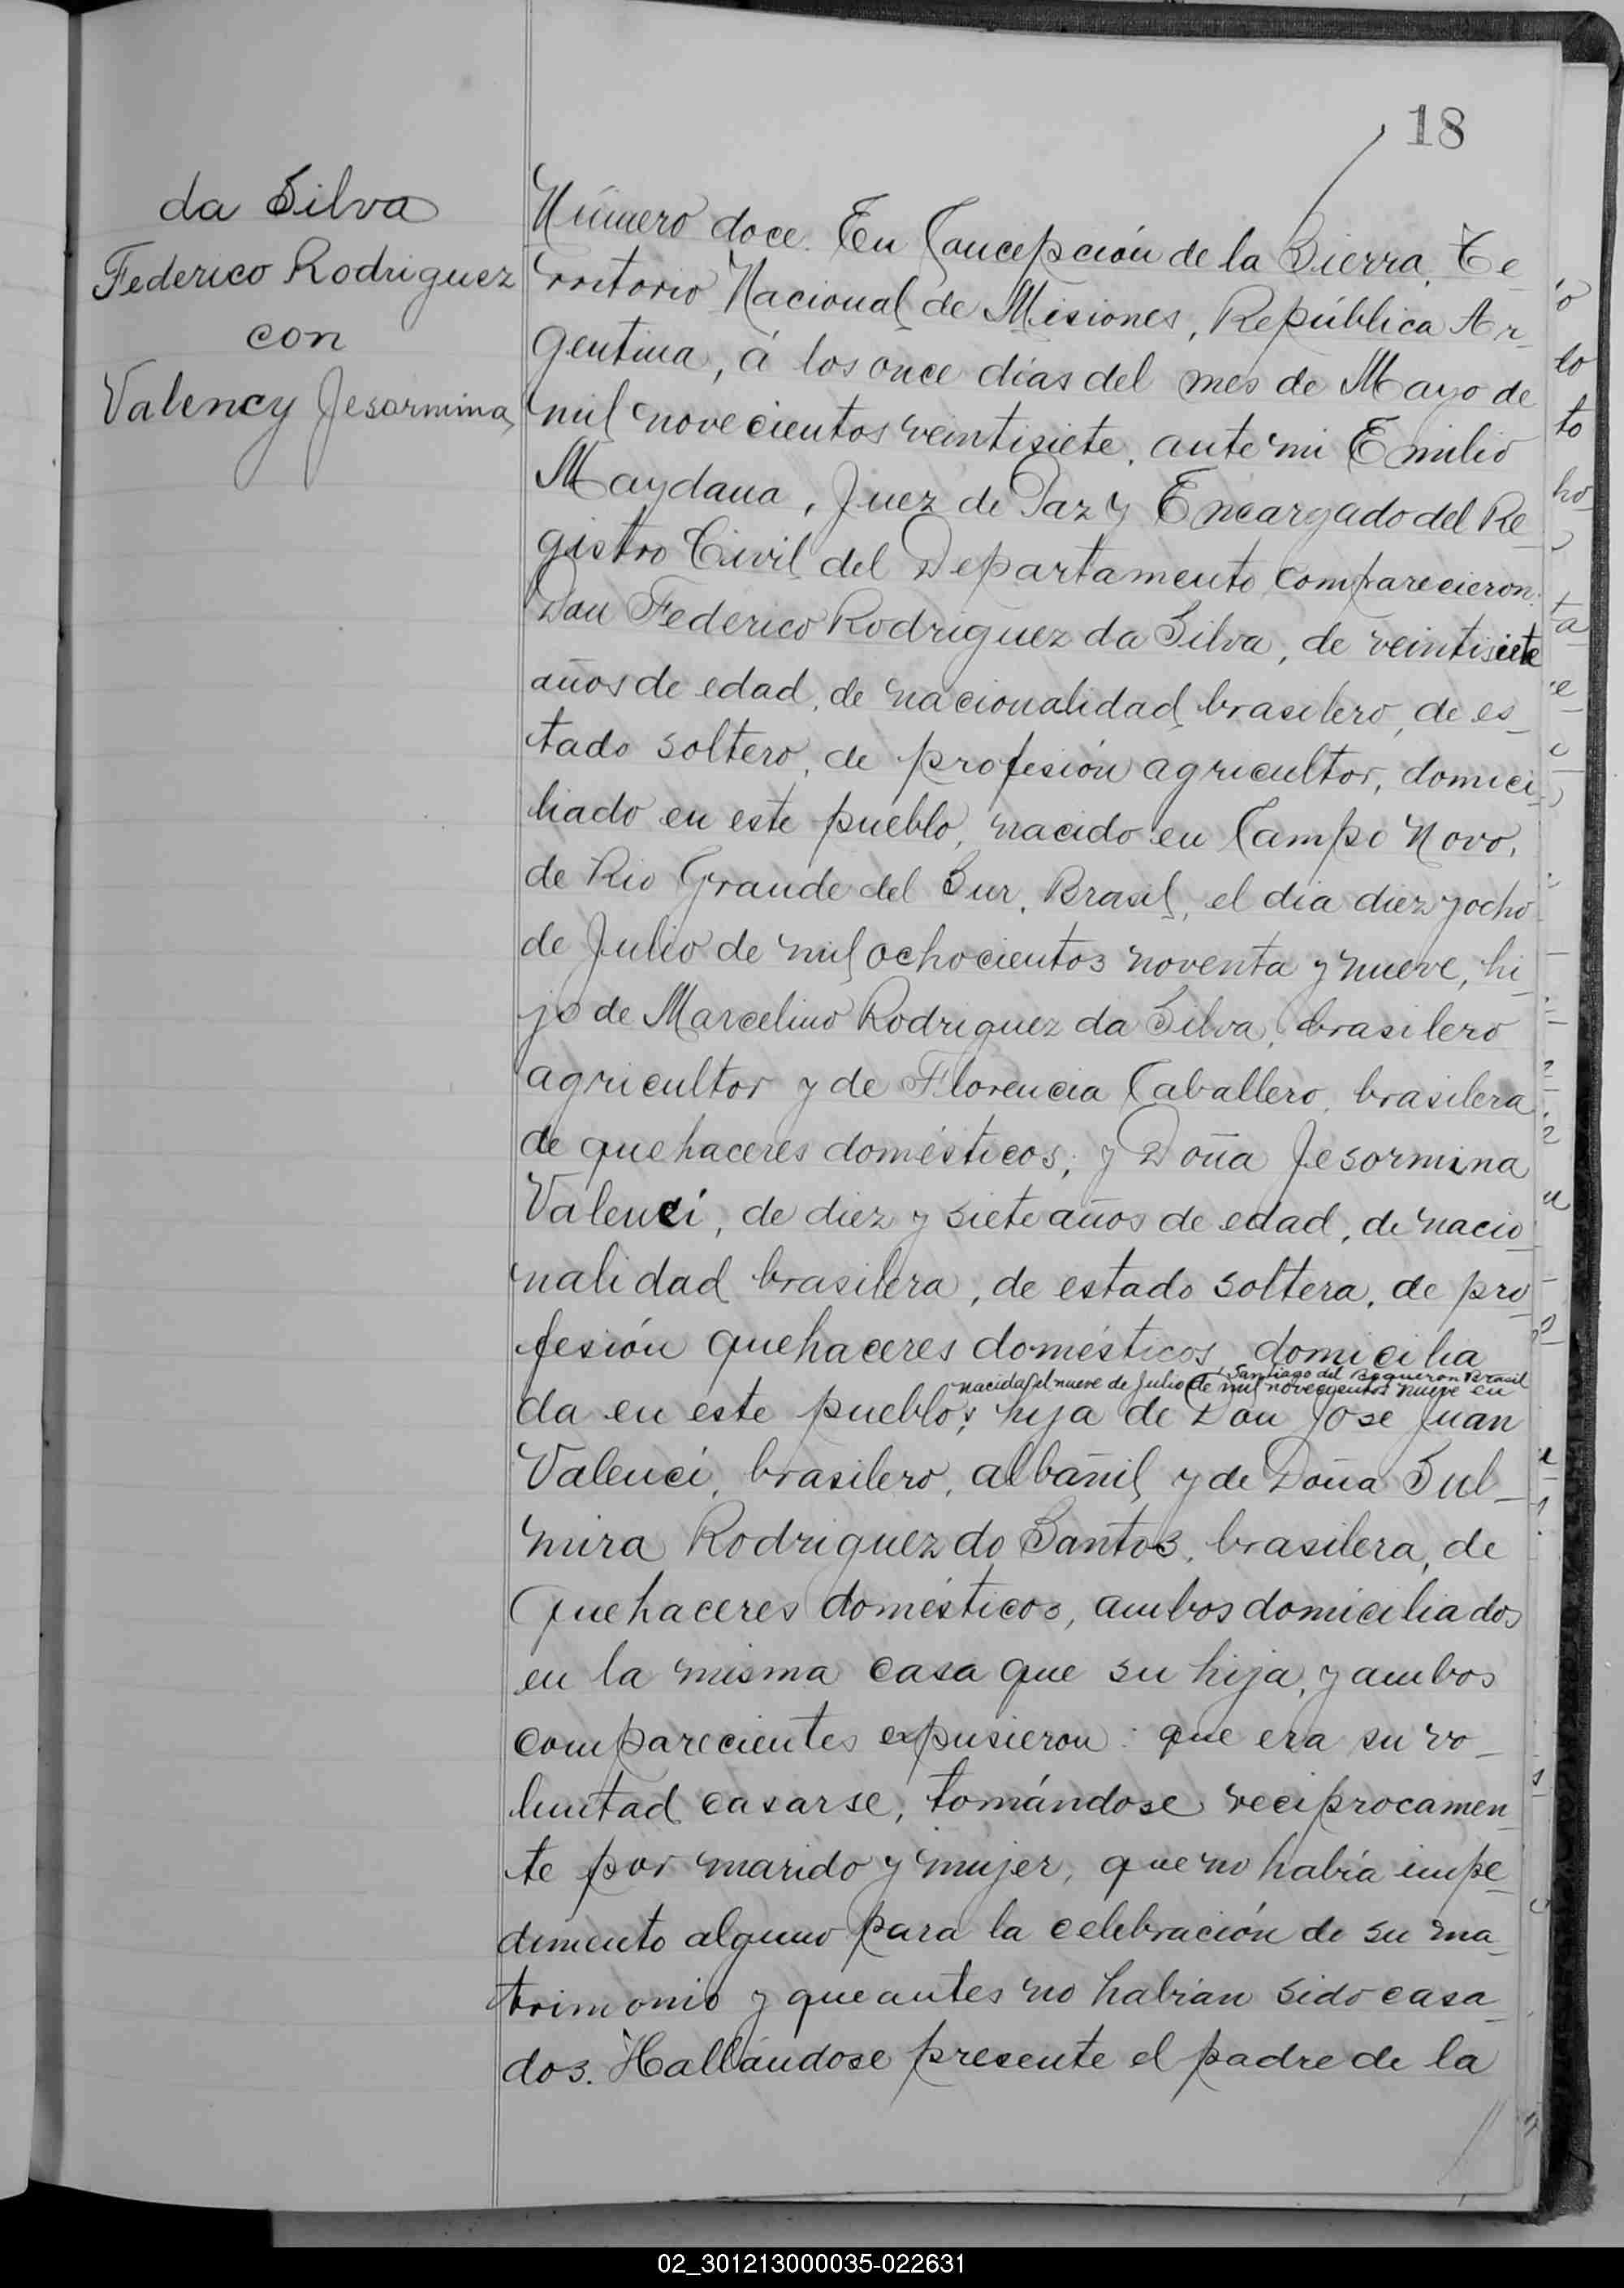 18
da Silva
Federico Rodriguez
con
Valency Jesormina
Número doce. En Concepción de la Sierra, Te_
rritorio Nacional de Misiones, República Ar_
gentina, á los once días del mes de Mayo de
mil novecientos veintisiete, ante mi Emilio
Maydana, Juez de Paz y Encargado del Re_
gistro Civil del Departamento comparecieron:
Don Federico Rodriguez da Silva, de veintisiete
años de edad, de nacionalidad brasilero, de es_
tado soltero, de profesión agricultor, domici_
liado en este pueblo, nacido en Campo Novo,
de Rio Grande del Sur, Brasil, el dia diez y ocho
de Julio de mil ochocientos noventa y nueve, hi_
jo de Marcelino Rodriguez da Silva, brasilero
agricultor y de Florencia Caballero, brasilera
de quehaceres domésticos; y Doña Jesormina
Valenci, de diez y siete años de edad, de nacio_
nalidad brasilera, de estado soltera, de pro_
fesión quehaceres domésticos, domicilia
Santiago del Boqueron Brasil
nacida el nueve de Julio de mil novecientos nueve en
da en este pueblo; hija de Don Jose Juan
Valenci, brasilero, albañil y de Doña Sul_
mira Rodriguez do Santos, brasilera, de
quehaceres domésticos, ambos domiciliados
en la misma casa que su hija, y ambos
comparecientes expusieron: que era su vo_
luntad casarse, tomándose reciprocamen_
te por marido y mujer, que no había impe_
dimento alguno para la celebración de su ma_
trimonio y que antes no habían sido casa_
dos. Hallándose presente el padre de la
02_301213000035-022631